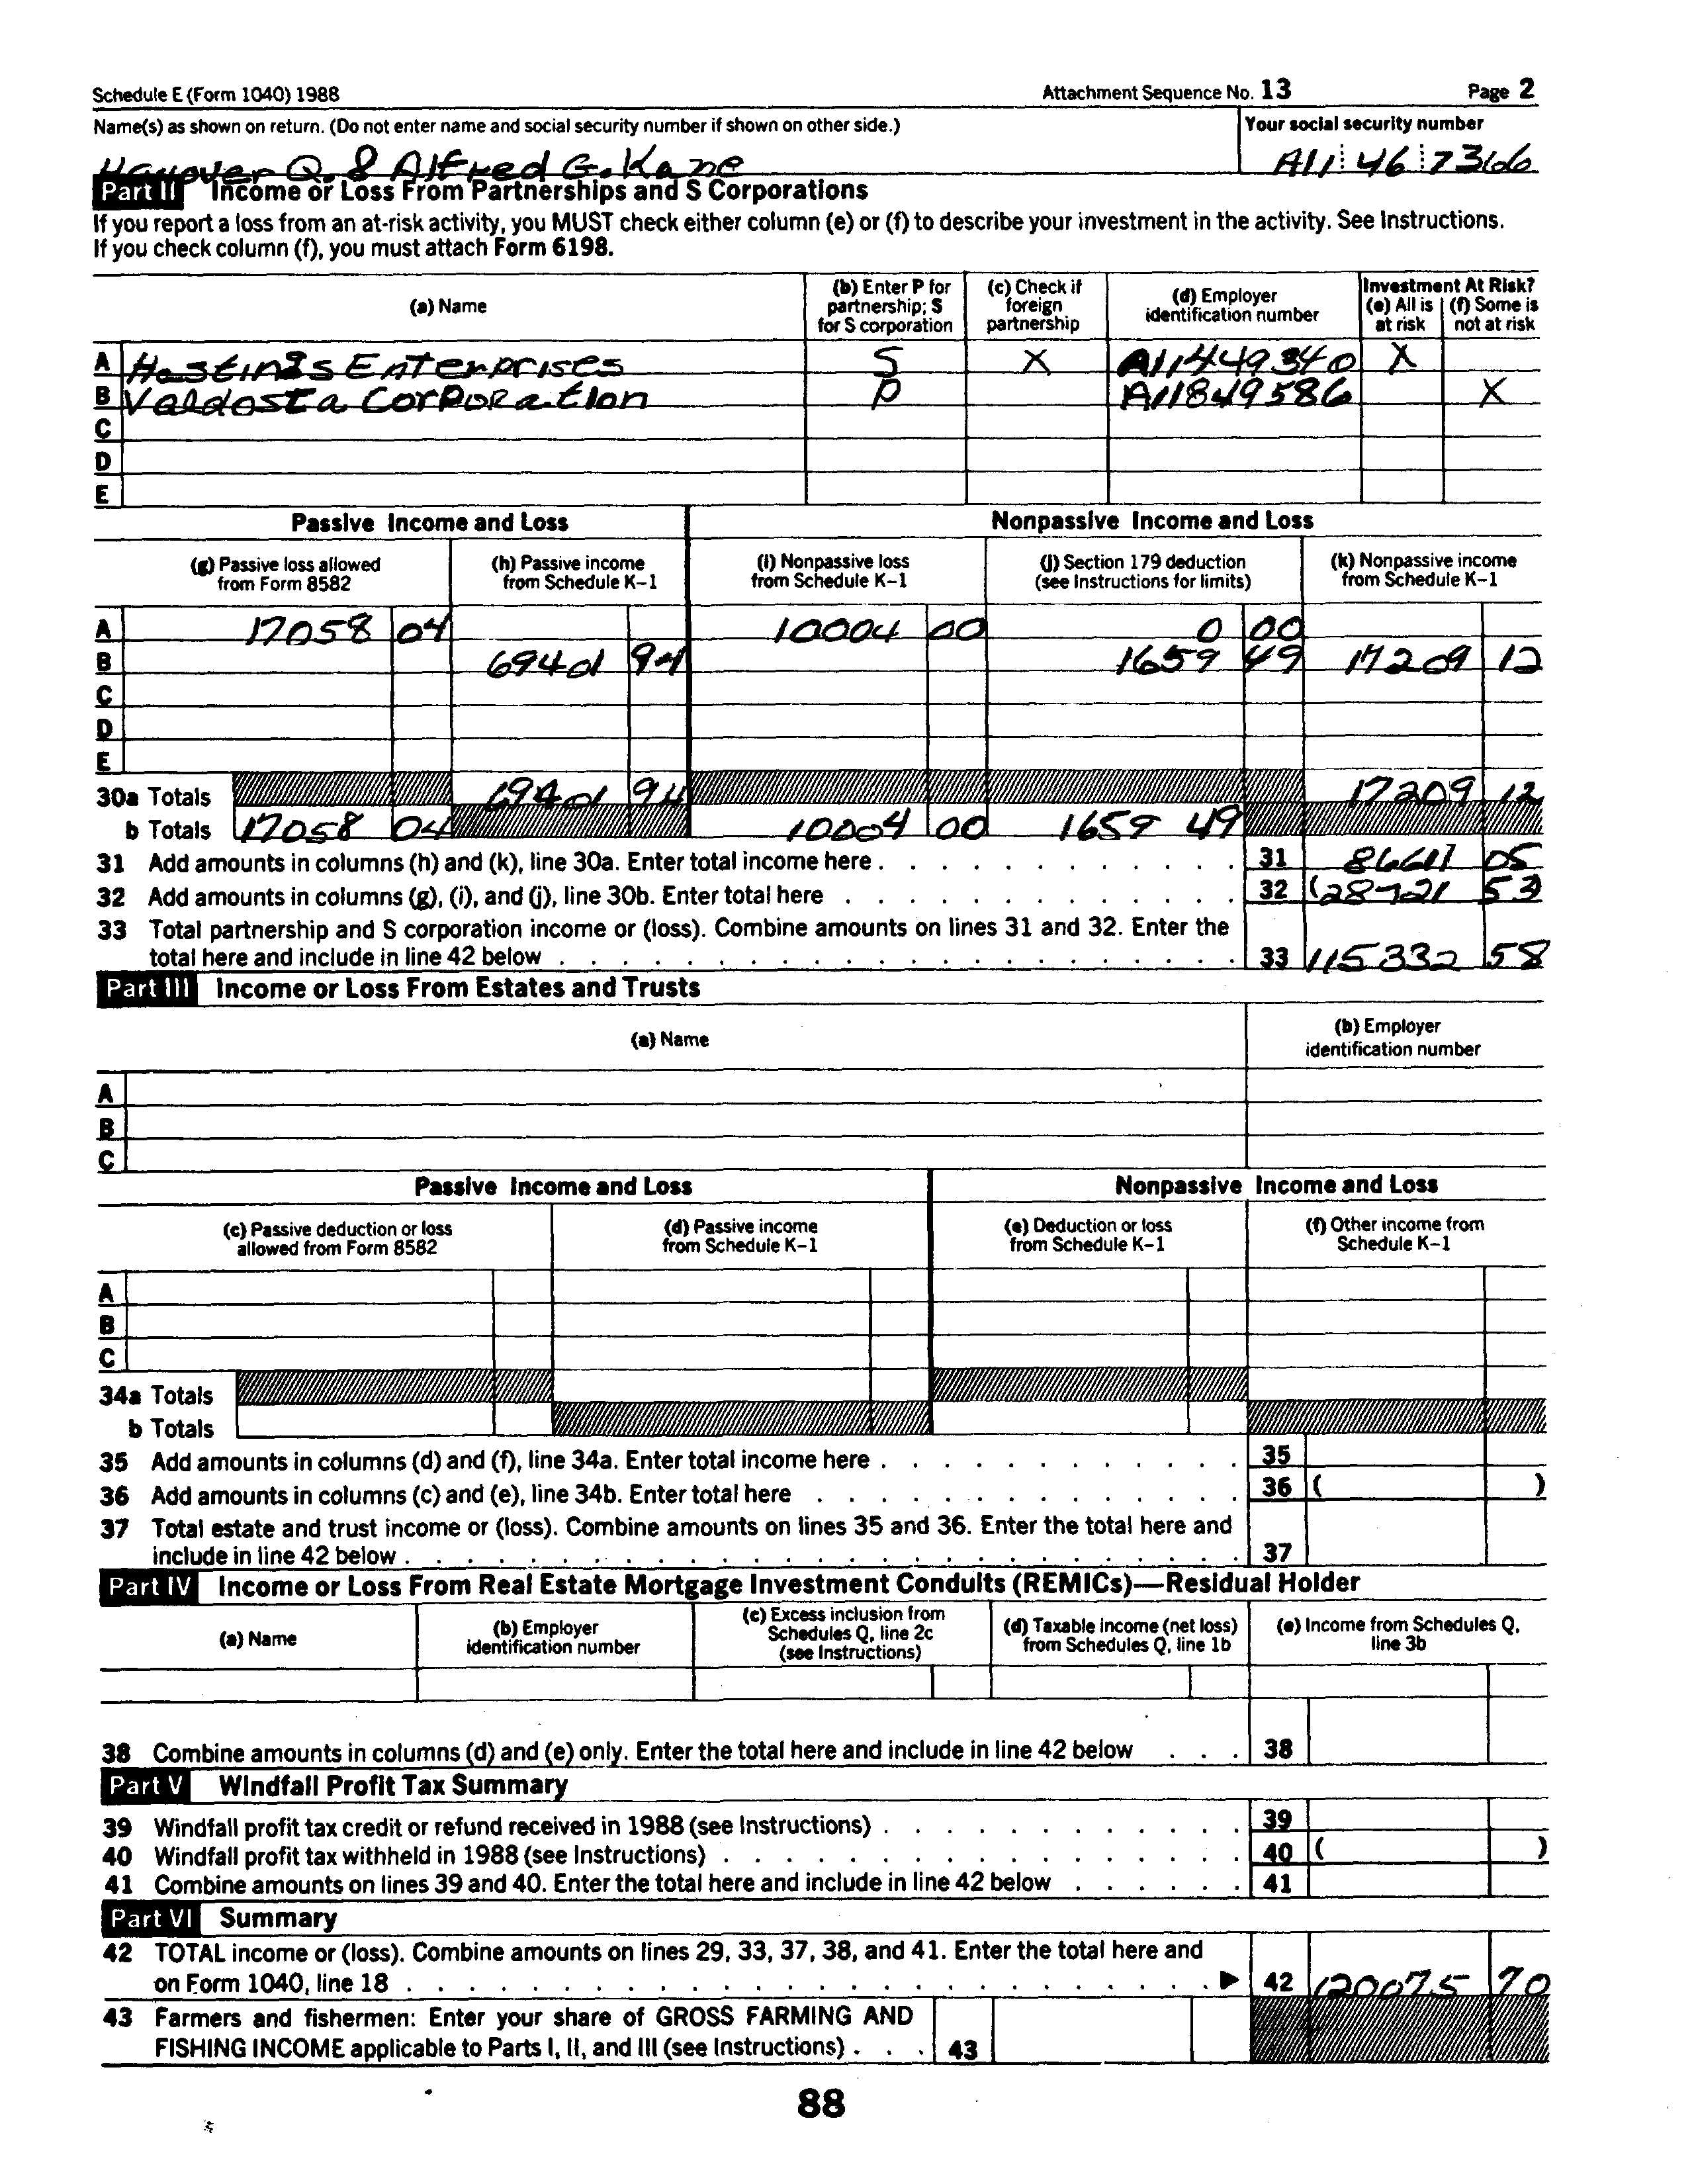 Schedule E (Form 1040) 1988 Attachment Sequence No. 13 Page 2
Name(s) as shown on return. (Do not enter name and social security number if shown on other side.) Your social security number
Q. & Alfred G. Kane A11 46 7366
Part II Income or Loss From Partnerships and S Corporations
If you report a loss from an at-risk activity, you MUST check either column (e) or (f) to describe your investment in the activity. See Instructions.
If you check column (f), you must attach Form 6198.
(a) Name (b) Enter P for partnership; S for S corporation (c) Check if foreign partnership (d) Employer identification number Investment At Risk? (e) All is at risk (f) Some is not at risk
A Hastings Enterprises S X A11449340 X
B Valdosta Corporation P A11849586 X
C
D
E
Passive Income and Loss Nonpassive Income and Loss
(g) Passive loss allowed from Form 8582 (h) Passive income from Schedule K-1 (i) Nonpassive loss from Schedule K-1 (j) Section 179 deduction (see Instructions for limits) (k) Nonpassive income from Schedule K-1
A 17058 04 10004 00 0 00
B 69401 94 1659 49 17209 12
C
D
E
30a Totals 69401 94 17209 12
b Totals 17058 04 10004 00 1659 49
31 Add amounts in columns (h) and (k), line 30a. Enter total income here . 31 86611 05
32 Add amounts in columns (g), (i), and (j), line 30b. Enter total here 32 (28721 53)
33 Total partnership and S corporation income or (loss). Combine amounts on lines 31 and 32. Enter the
total here and include in line 42 below 33 115332 58
Part III Income or Loss From Estates and Trusts
(a) Name (b) Employer identification number
A
B
C
Passive Income and Loss Nonpassive Income and Loss
(c) Passive deduction or loss allowed from Form 8582 (d) Passive income from Schedule K-1 (e) Deduction or loss from Schedule K-1 (f) Other income from Schedule K-1
A
B
C
34a Totals
b Totals
35 Add amounts in columns (d) and (f), line 34a. Enter total income here . 35
36 Add amounts in columns (c) and (e), line 34b. Enter total here 36 ( )
37 Total estate and trust income or (loss). Combine amounts on lines 35 and 36. Enter the total here and
include in line 42 below . 37
Part IV Income or Loss From Real Estate Mortgage Investment Conduits (REMICs)—Residual Holder
(a) Name (b) Employer identification number (c) Excess inclusion from Schedules Q, line 2c (see Instructions) (d) Taxable income (net loss) from Schedules Q, line 1b (e) Income from Schedules Q, line 3b
38 Combine amounts in columns (d) and (e) only. Enter the total here and include in line 42 below 38
Part V Windfall Profit Tax Summary
39 Windfall profit tax credit or refund received in 1988 (see Instructions) . 39
40 Windfall profit tax withheld in 1988 (see Instructions) . 40 ( )
41 Combine amounts on lines 39 and 40. Enter the total here and include in line 42 below 41
Part VI Summary
42 TOTAL income or (loss). Combine amounts on lines 29, 33, 37, 38, and 41. Enter the total here and
on Form 1040, line 18 ▶ 42 120075 70
43 Farmers and fishermen: Enter your share of GROSS FARMING AND
FISHING INCOME applicable to Parts I, II, and III (see Instructions) . 43
88